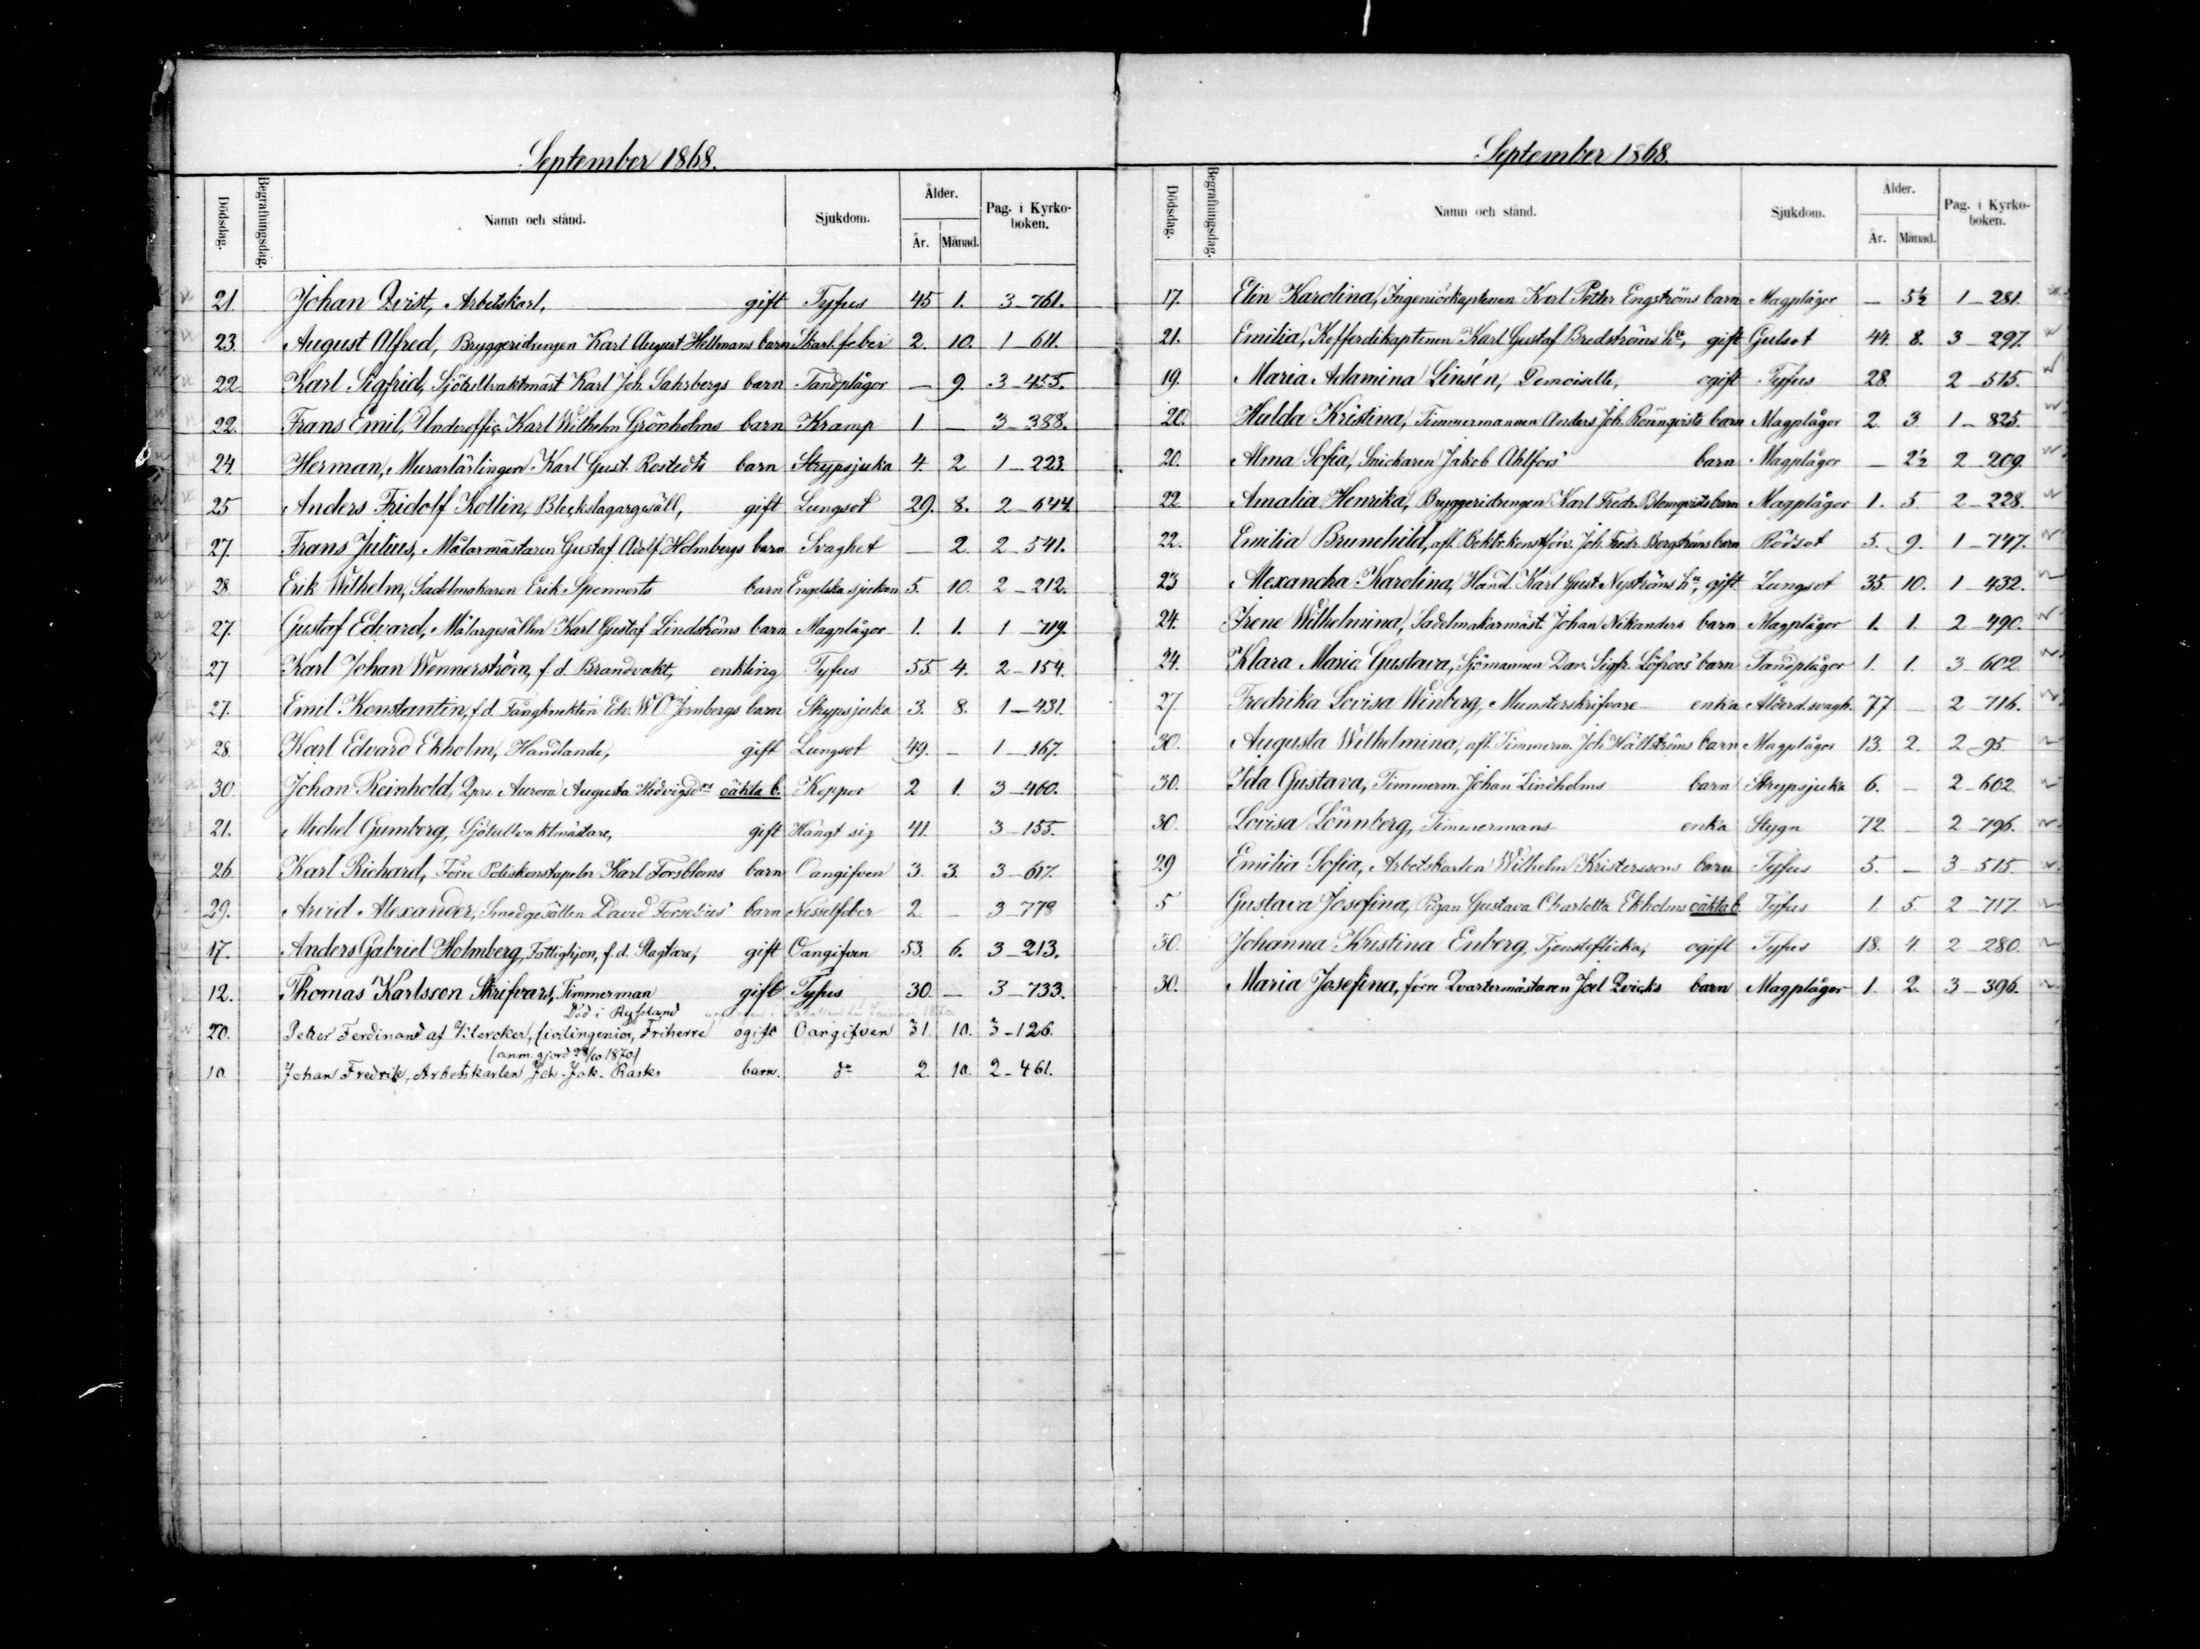 September 1868.
Dödsdag. Begrafningsdag. Namn och stånd. Sjukdom. Ålder. År. Månad. Pag. i Kyrko-boken.
21. Johan Qvist, Arbetskarl, gift Tyfus 45 1. 3-761.
23. August Alfred, Bryggeridrengen Karl August Hellmans barn Skarl.feber 2. 10. 1-611.
22. Karl Sigfrid, Sjötullvaktmäst Karl Joh. Sahrbergs barn Tandplågor — 9. 3-455.
22. Frans Emil, Underoffic Karl Wilhelm Grönholms barn Kramp 1 — 3-388.
24. Herman, Murarlärlingen Karl Gust. Rostedts barn Strypsjuka 4. 2. 1-223.
25 Anders Fridolf Kollin, Bleckslagargesäll, gift Lungsot 29. 8. 2-644.
27. Frans Julius, Målarmästaren Gustaf Adolf Holmbergs barn Svaghet — 2. 2-541.
28 Erik Wilhelm, Sadelmakaren Erik Spennerts barn Engelska sjukan 5. 10. 2-212.
27. Gustaf Edvard, Målargesällen Karl Gustaf Lindströms barn Magplågor 1. 1. 1-719.
27 Karl Johan Wennerström, f.d. Brandvakt, enkling Tyfus 55. 4. 2-154.
27. Emil Konstantin, f.d. Fångknekten Edv. W O Jernbergs barn Strypsjuka 3. 8. 1-431.
28. Karl Edvard Ekholm, Handlande, gift Lungsot 49. — 1-167.
30. Johan Reinhold, Qprs. Aurora Augusta Hedvigsdrs oäkta b. Koppor 2 1. 3-460.
21. Michel Gumberg, Sjötullvaktmästare, gift Hängt sig 41. 3-155.
26. Karl Richard, Förre Poliskonstapeln Karl Forsbloms barn Oangifven 3. 3. 3-617.
29. Arvid Alexander, Smedgesällen David Forselius' barn Nesselfeber 2. — 3-778
17. Anders Gabriel Holmberg, Fattighjon, f.d. Slagtare, gift Oangifven 53. 6. 3-213.
12. Thomas Karlsson Skrifvars, Timmerman gift Tyfus 30. — 3-733.
Död i Ryssland
20. Petter Ferdinand af Klercker, Civilingeniör, Friherre ogift Oangifven 31. 10. 3-126.
(anm. gjord 28/10 1870)
10. Johan Fredrik, Arbetskarlen Joh. Jak. Rasks barn. do 2. 10. 2-461.
September 1868.
Dödsdag. Begrafningsdag. Namn och stånd. Sjukdom. Ålder. År. Månad. Pag. i Kyrko-boken.
17. Elin Karolina, Ingeniörkaptenen Karl Petter Engströms barn Magplågor — 5½ 1-281.
21. Emilia, Kofferdikaptenen Karl Gustaf Bredströms hu, gift Gulsot 44. 8. 3-297.
19. Maria Adamina Linsén, Demoiselle, ogift Tyfus 28. 2-515.
20. Hulda Kristina, Timmermannen Anders Joh. Rönnqvists barn Magplågor 2. 3 1-825.
20. Alma Sofia, Snickaren Jakob Ahlfors' barn Magplågor — 2½ 2-209.
22. Amalia Henrika, Bryggeridrengen Karl Fredr. Blomqvists barn Magplågor 1. 5. 2-228.
22. Emilia Brunehild, afl. Boktr.konstförv. Joh. Fredr. Bergströms barn Rödsot 5. 9. 1-747.
23 Alexandra Karolina, Hand. Karl Gust Nyströms hu, gift Lungsot 35. 10. 1-432.
24. Irene Wilhelmina, Sadelmakarmäst. Johan Nikanders barn Magplågor 1. 1. 2-490.
24. Klara Maria Gustava, Sjömannen Dav. Sigfr. Löfroos' barn Tandplågor 1. 1. 3-602.
27 Fredrika Lovisa Winberg, Munsterskrifvare enka Ålderd.svagh. 77 — 2-716.
30. Augusta Wilhelmina, afl. Timmerm. Joh. Wallströms barn Magplågor 13. 2. 2-95.
30. Ida Gustava, Timmerm. Johan Lindholms barn Strypsjuka 6. — 2-602.
30. Lovisa Lönnberg, Timmermans enka Stygn 72. — 2-796.
29 Emilia Sofia, Arbetskarlen Wilhelm Kristerssons barn Tyfus 5. — 3-515.
5 Gustava Josefina, Pigan Gustava Charlotta Ekholms oäkta b. Tyfus 1. 5. 2-717.
30. Johanna Kristina Enberg, Tjensteflicka, ogift Tyfus 18. 4. 2-280.
30. Maria Josefina, förre Qvartermästaren Joel Qvicks barn Magplågor 1. 2. 3-396.